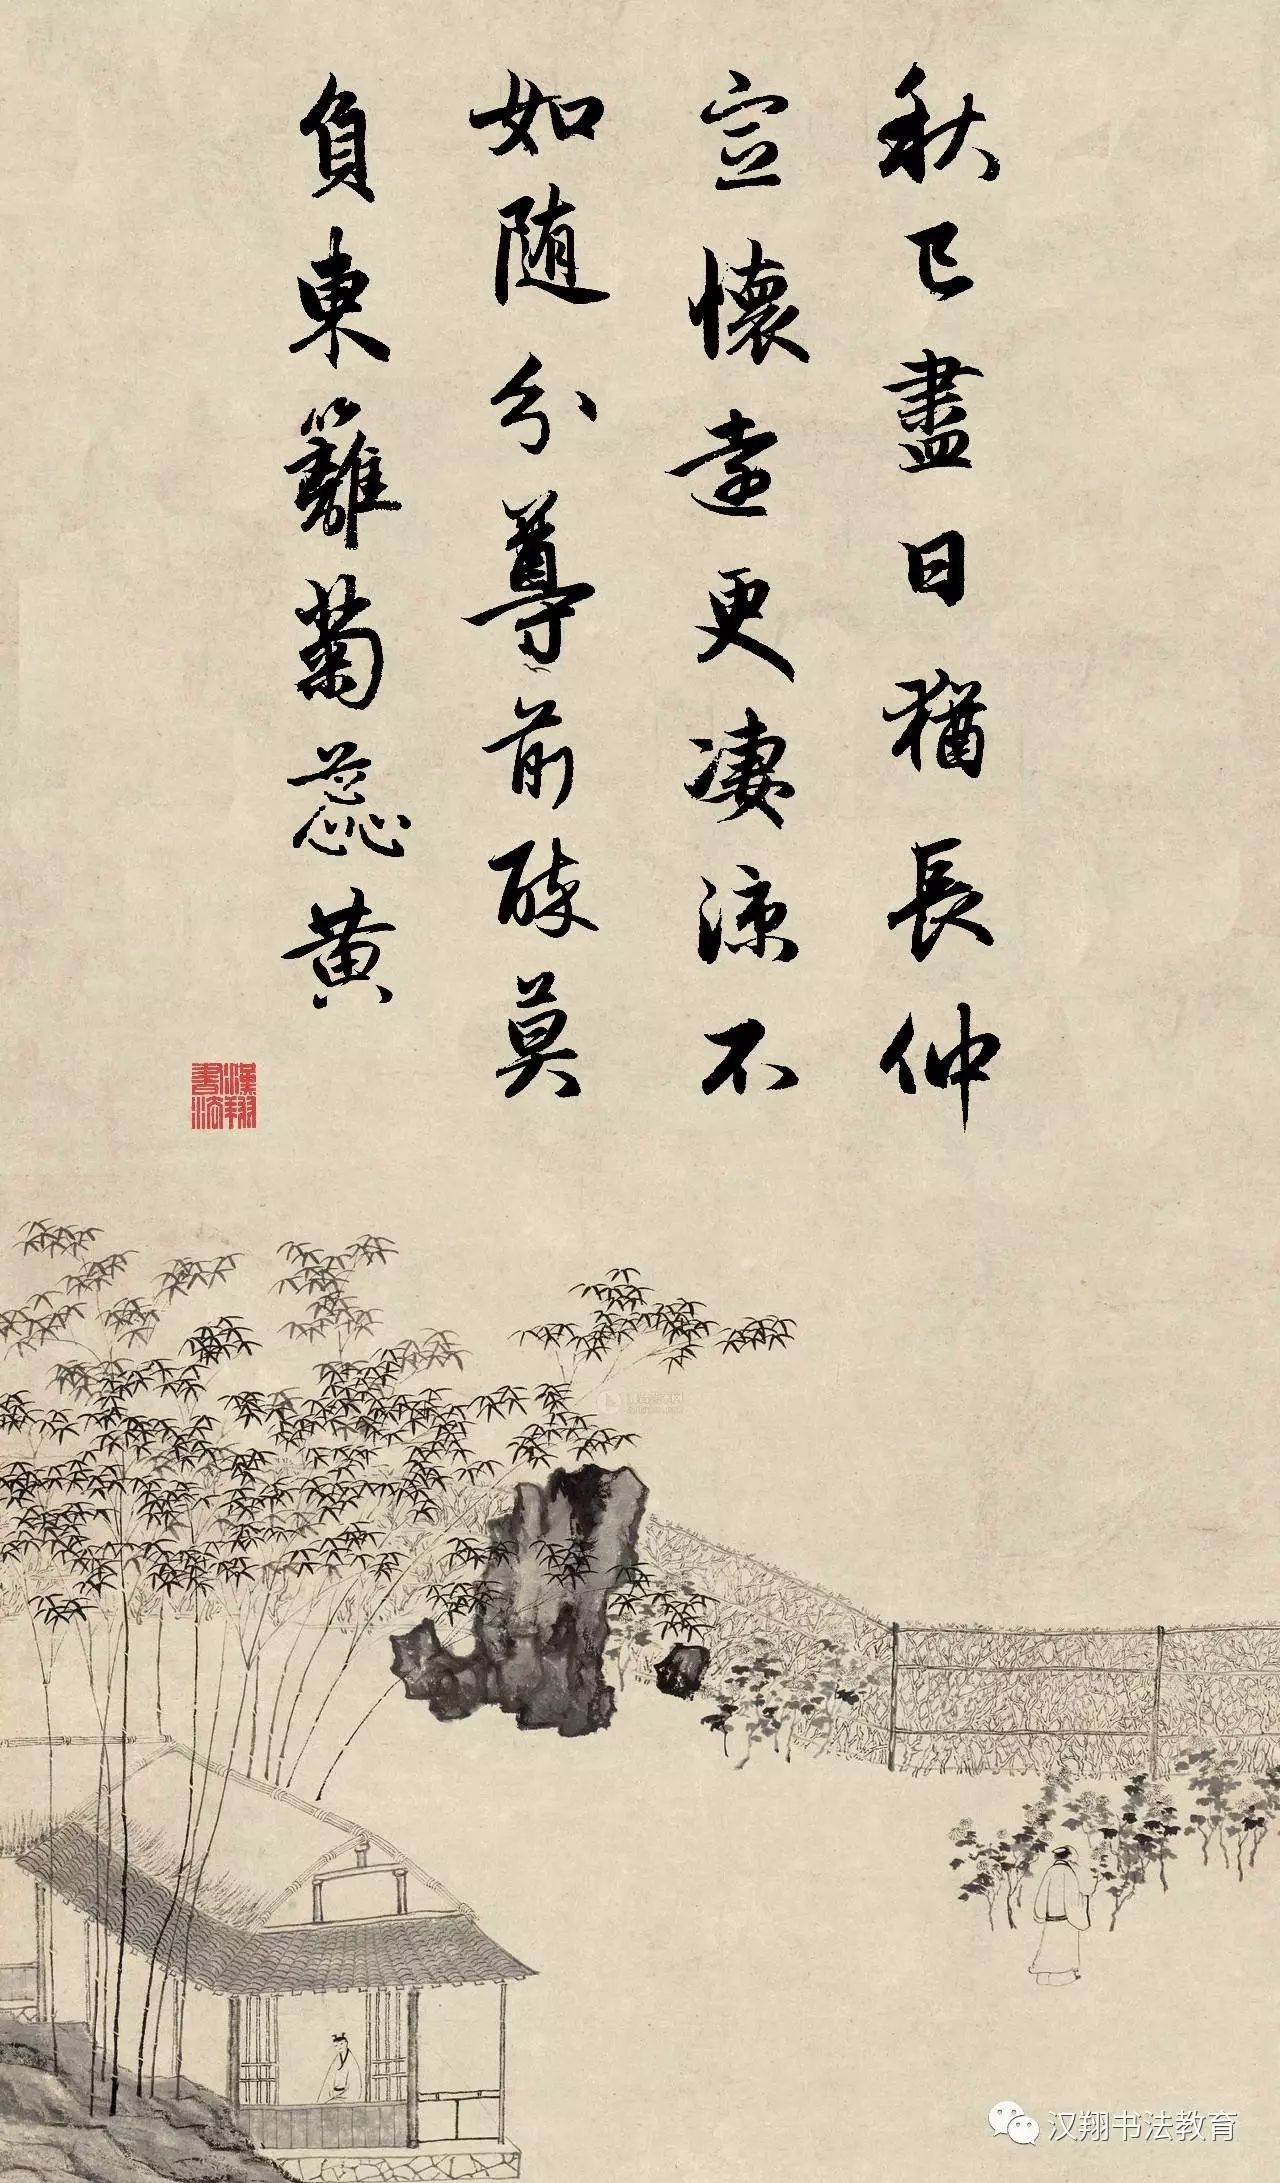 秋已盡日猶長仲
宣懷遠更凄涼不
如隨分尊前醉莫
負東籬菊蕊黃
漢翔書法
汉翔书法教育